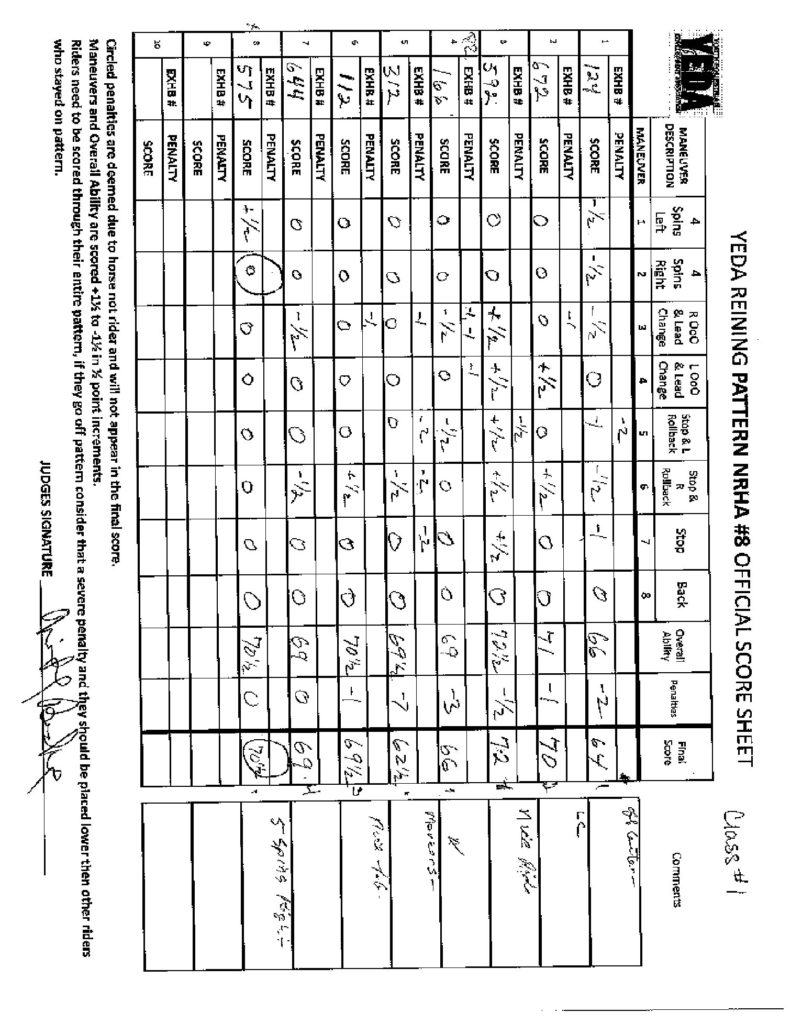 YEDA REINING PATTERN NRHA #8 OFFICIAL SCORE SHEET Class #1
YEDA
MANEUVER DESCRIPTION 4 Spins Left 4 Spins Right R OoO & Lead Change L OoO & Lead Change Stop & L Rollback Stop & R Rollback Stop Back Overall Ability Penalties Final Score Comments
MANEUVER 1 2 3 4 5 6 7 8
1 EXHB # PENALTY -2
124 SCORE -½ -½ -½ 0 -1 -½ -1 0 66 -2 64
2 EXHB # PENALTY -1
672 SCORE 0 0 0 +½ 0 +½ 0 0 71 -1 70 LC
3 EXHB # PENALTY -½
592 SCORE 0 0 +½ +½ +½ +½ +½ 0 72½ -½ 72 Nice Ride
4 EXHB # PENALTY -1, -1 -1
166 SCORE 0 0 -½ 0 -½ 0 0 0 69 -3 66
5 EXHB # PENALTY -1 -2 -2 -2
312 SCORE 0 0 0 0 0 -½ 0 0 69½ -7 62½ Markers-
6 EXHB # PENALTY -1
112 SCORE 0 0 0 0 0 +½ 0 0 70½ -1 69½
7 EXHB # PENALTY
644 SCORE 0 0 -½ 0 0 -½ 0 0 69 0 69
8 EXHB # PENALTY
575 SCORE +½ 0 0 0 0 0 0 0 70½ 0 70½ 5 Spins Right-
9 EXHB # PENALTY
SCORE
10 EXHB # PENALTY
SCORE
Circled penalties are deemed due to horse not rider and will not appear in the final score.
Maneuvers and Overall Ability are scored +1½ to -1½ in ½ point increments.
Riders need to be scored through their entire pattern, if they go off pattern consider that a severe penalty and they should be placed lower then other riders
who stayed on pattern.
JUDGES SIGNATURE